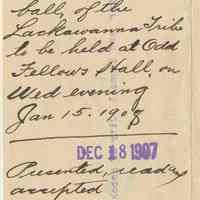 ball, of the
Lackawanna Tribe
to be held at Odd
Fellows Hall, on
Wed evening
Jan 15. 1908
DEC 18 1907
Presented, read and
accepted